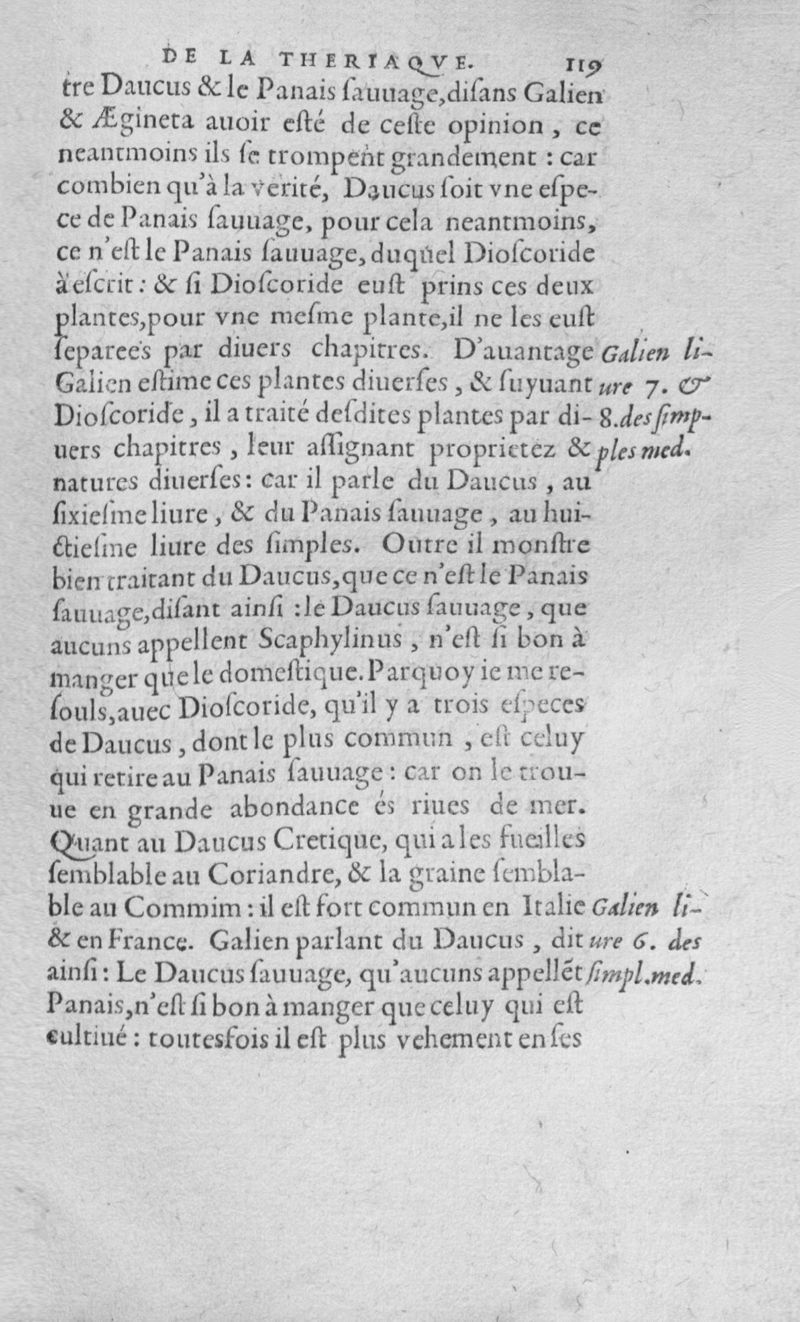 DE LA THERIAQVE. 119
tre Daucus & le Panais ſauuage,diſans Galien
& Ægineta auoir eſté de ceſte opinion , ce
neantmoins ils ſe trompent grandement : car
combien qu'à la verité, Daucus ſoit vne eſpe-
ce de Panais ſauuage, pour cela neantmoins,
ce n'eſt le Panais ſauuage, duquel Dioſcoride
à eſcrit : & ſi Dioſcoride euſt prins ces deux
plantes,pour vne meſme plante,il ne les euſt
ſeparees par diuers chapitres. D'auantage
Galien eſtime ces plantes diuerſes , & ſuyuant
Dioſcoride , il a traité deſdites plantes par di-
uers chapitres , leur aſſignant proprietez &
natures diuerſes : car il parle du Daucus , au
ſixieſme liure , & du Panais ſauuage , au hui-
ctieſme liure des ſimples. Outre il monſtre
bien traitant du Daucus,que ce n'eſt le Panais
ſauuage,diſant ainſi :le Daucus ſauuage , que
aucuns appellent Scaphylinus , n'eſt ſi bon à
manger que le domeſtique. Parquoy ie me re-
ſouls,auec Dioſcoride, qu'il y a trois eſpeces
de Daucus , dont le plus commun , eſt celuy
qui retire au Panais ſauuage : car on le trou-
ue en grande abondance és riues de mer.
Quant au Daucus Cretique, qui a les fueilles
ſemblable au Coriandre, & la graine ſembla-
ble au Commim : il eſt fort commun en Italie
& en France. Galien parlant du Daucus , dit
ainſi : Le Daucus ſauuage, qu'aucuns appellẽt
Panais,n'eſt ſi bon à manger que celuy qui eſt
cultiué : toutesfois il eſt plus vehement en ſes
Galien li-
ure 7. &
8.des ſimp-
ples med.
Galien li-
ure 6. des
ſimpl.med.